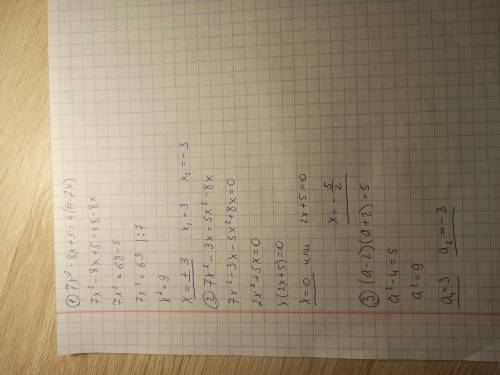 ① 7x² - 8x + 5 = 4(17 - 2x)
7x² - 8x + 5 = 68 - 8x
7x² = 68 - 5
7x² = 63 | : 7
x² = 9
x = ± 3 x₁ = 3 x₂ = - 3
② 7x² - 3x = 5x² - 8x
7x² - 3x - 5x² + 8x = 0
2x² + 5x = 0
x(2x + 5) = 0
x = 0 или 2x + 5 = 0
x = - 5/2
③ (a - 2)(a + 2) = 5
a² - 4 = 5
a² = 9
a₁ = 3 a₂ = - 3